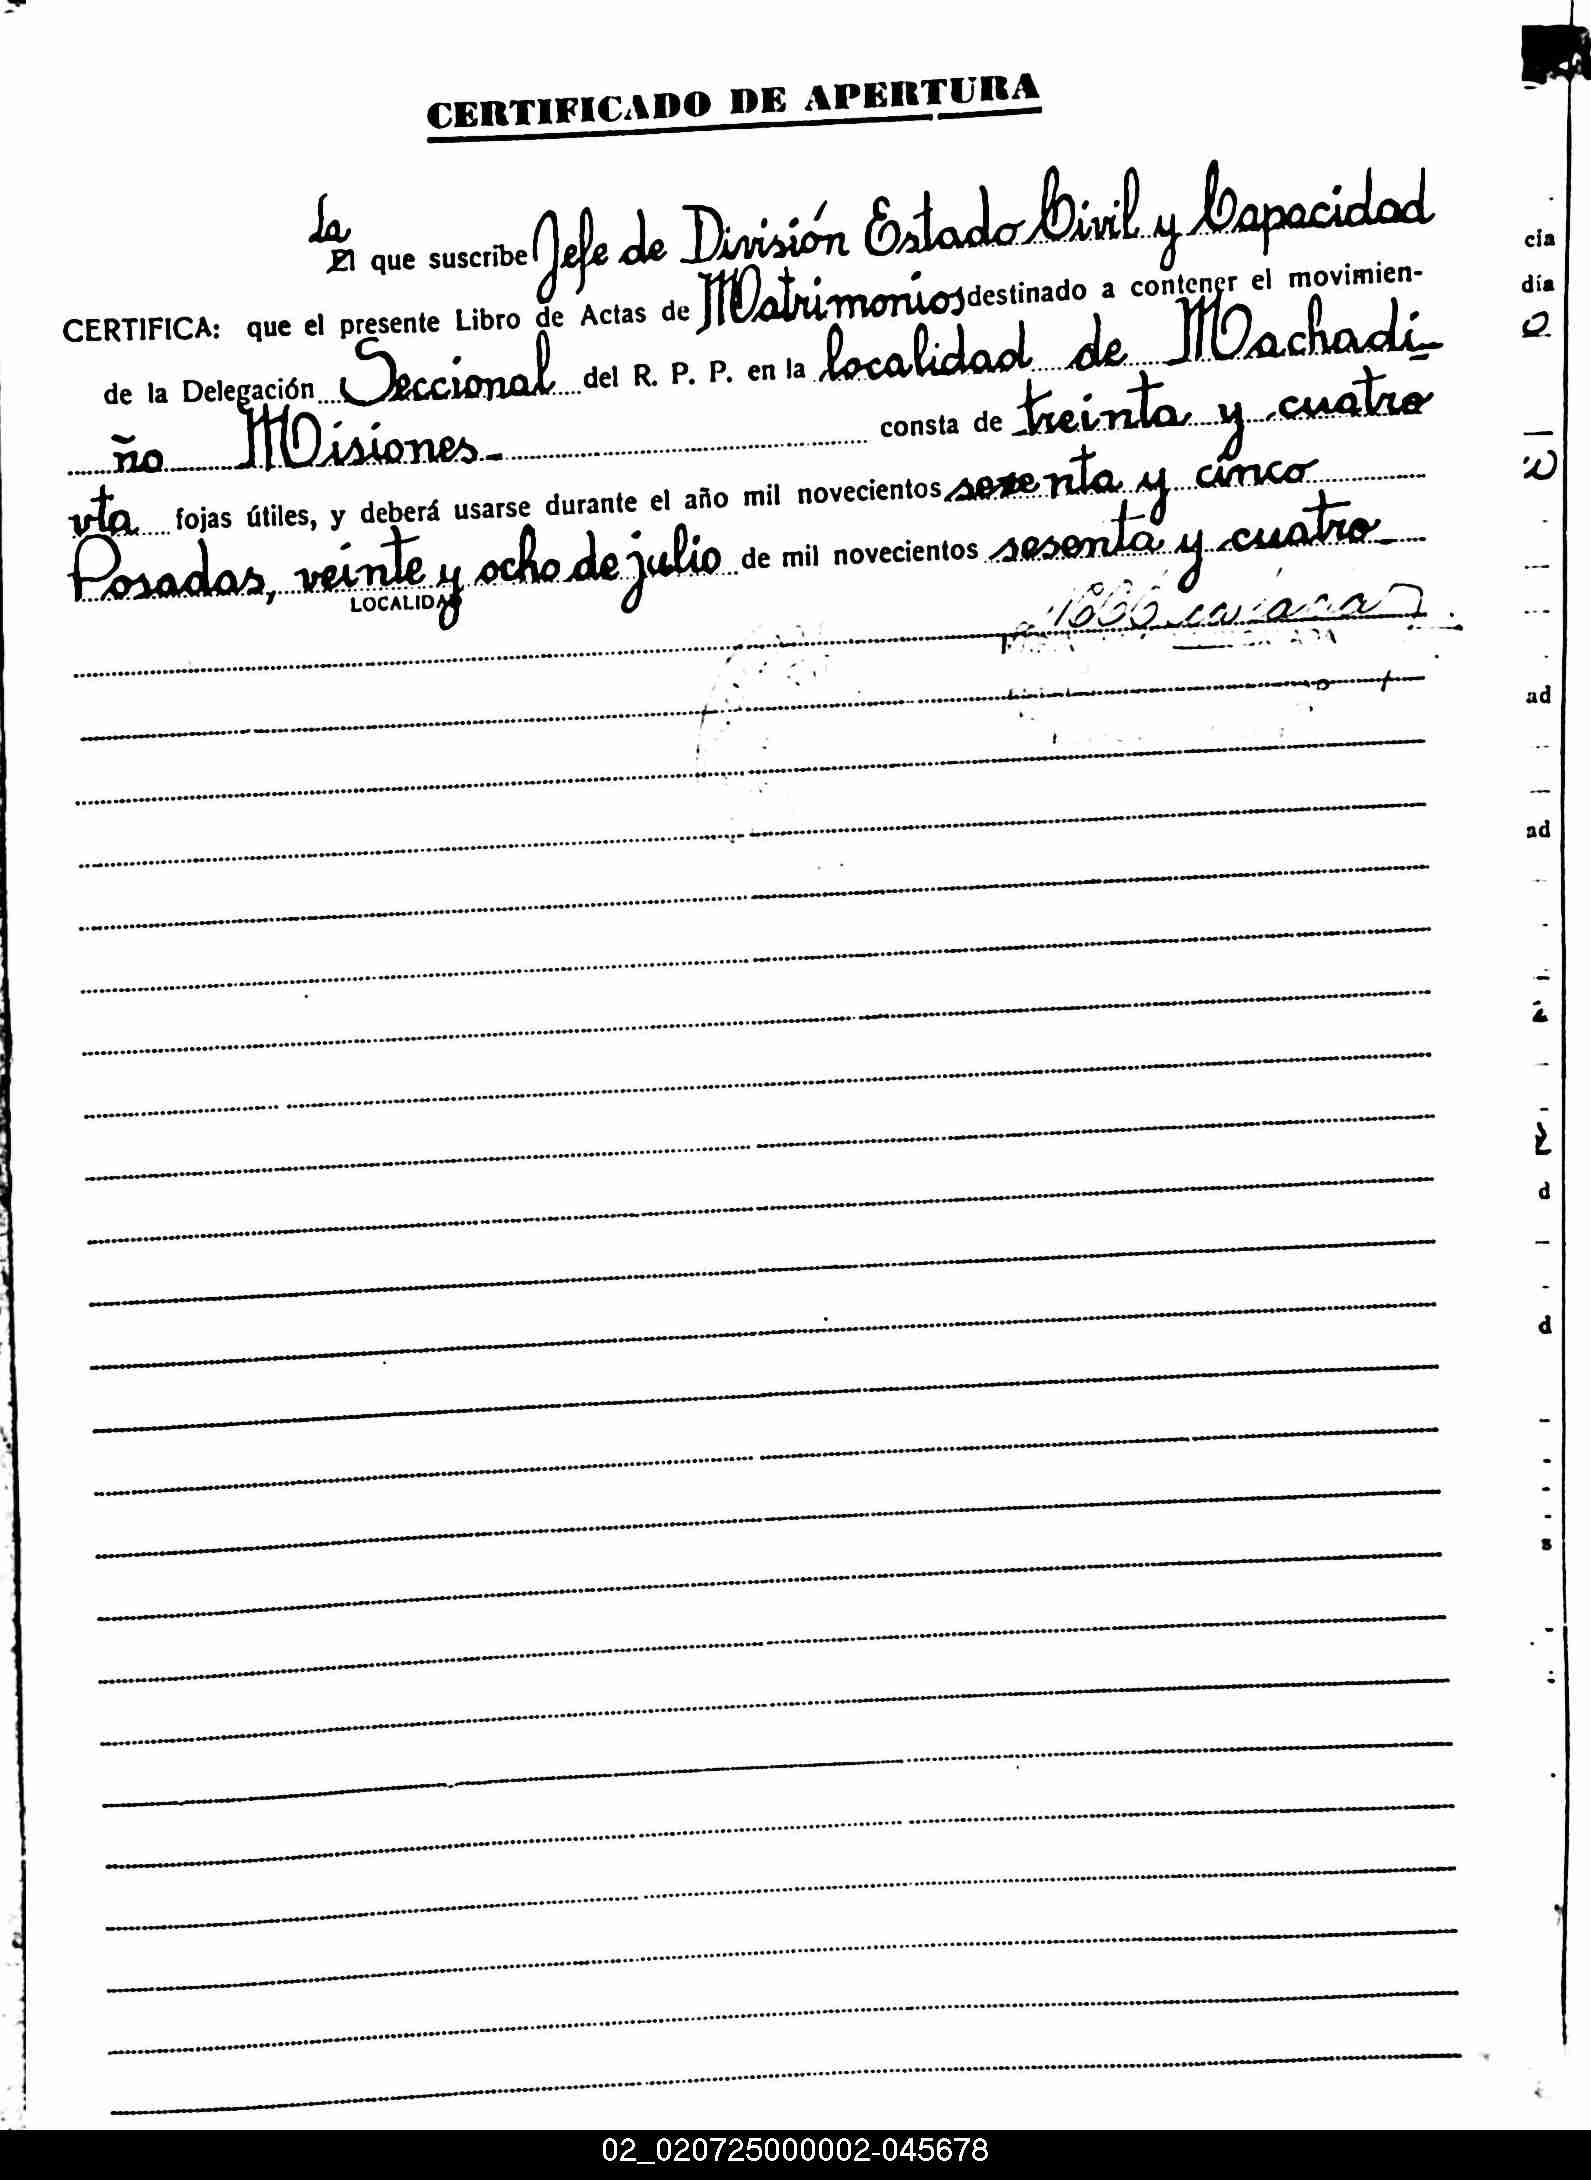 CERTIFICADO DE APERTURA
La
El que suscribe Jefe de División Estado Civil y Capacidad
CERTIFICA: que el presente Libro de Actas de Matrimonios destinado a contener el movimien-
de la Delegación Seccional del R. P. P. en la localidad de Machadi-
ño Misiones- consta de treinta y cuatro
fojas útiles, y deberá usarse durante el año mil novecientos sesenta y cinco
Posadas, veinte y ocho de julio de mil novecientos sesenta y cuatro-
LOCALIDAD
cia
día
ad
ad
d
d
s
02_020725000002-045678